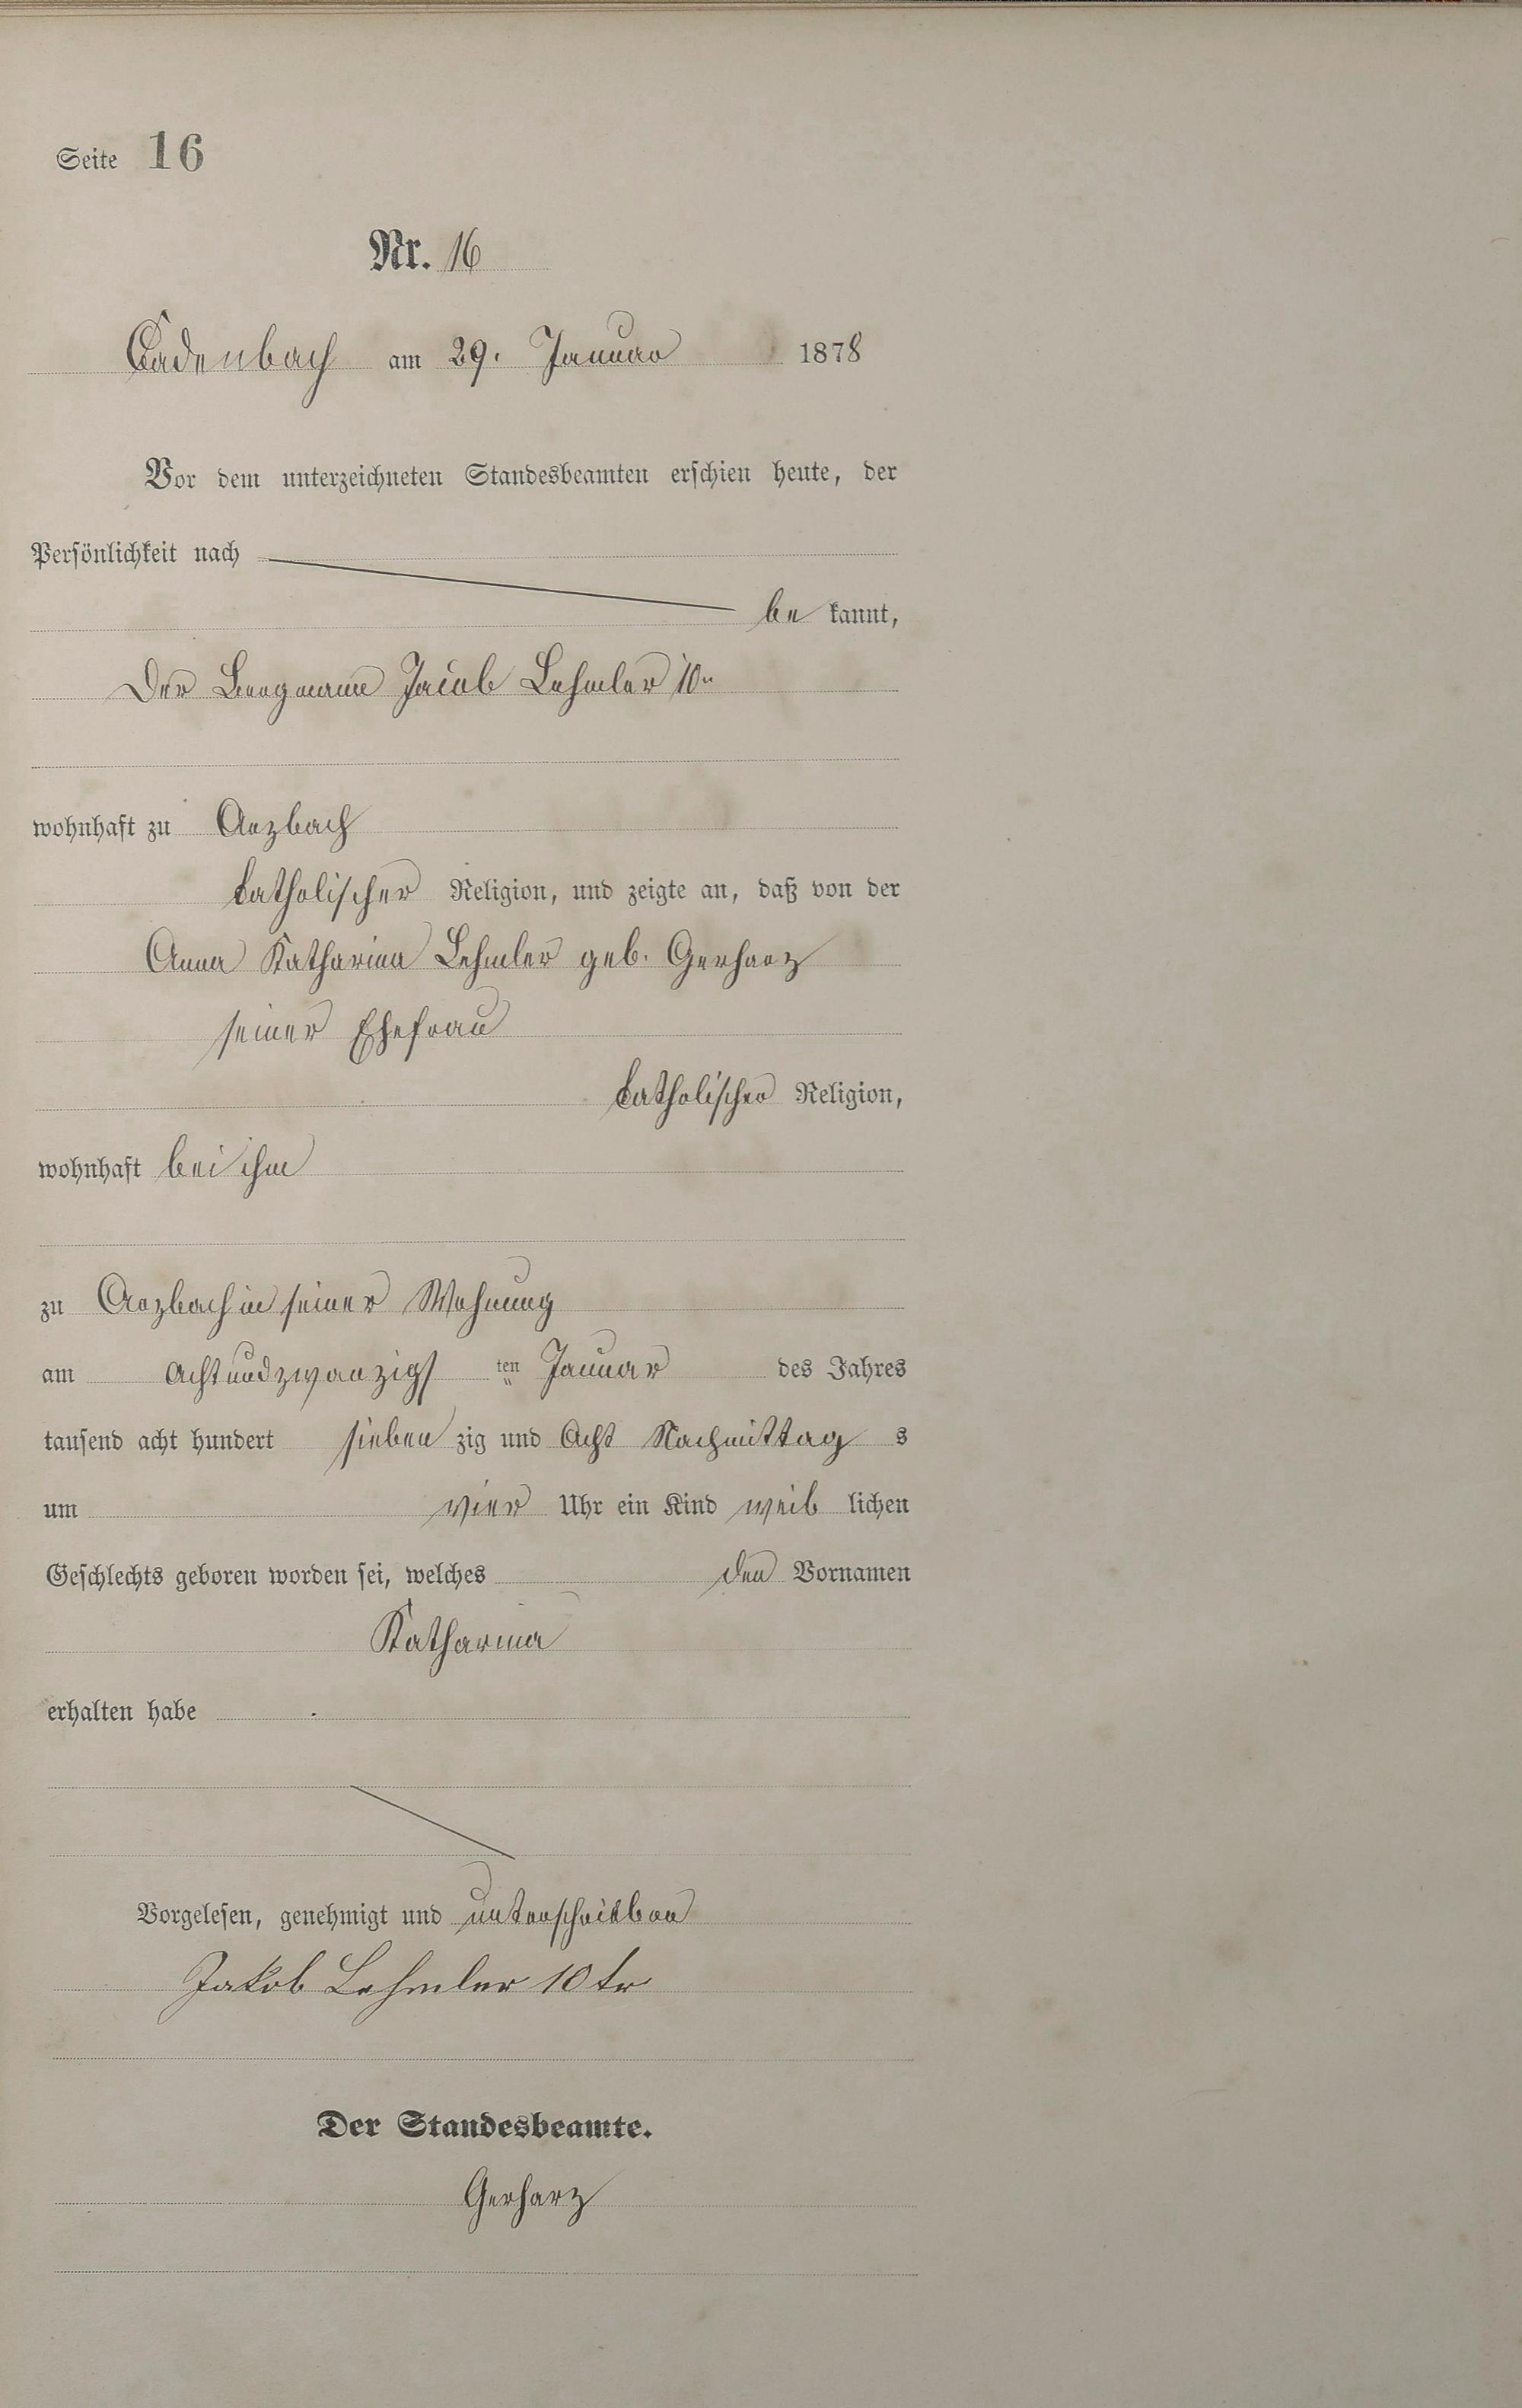 Seite 16
Nr. 16
Cadenbach am 29. Januar 1878
Vor dem unterzeichneten Standesbeamten erschien heute, der
Persönlichkeit nach
be kannt,
Der Bergmann Jacob Lehmler 10r
wohnhaft zu Arzbach
katholischer Religion, und zeigte an, daß von der
Anna Katharina Lehmler geb. Gerharz
seiner Ehefrau
katholischer Religion,
wohnhaft bei ihm
zu Arzbach in seiner Wohnung
am achtundzwanzigs ten Januar des Jahres
tausend acht hundert sieben zig und Acht Nachmittag s
um vier Uhr ein Kind weib lichen
Geschlechts geboren worden sei, welches den Vornamen
Katharina
erhalten habe
Vorgelesen, genehmigt und unterschrieben
Jakob Lehmler 10 tr
Der Standesbeamte.
Gerharz